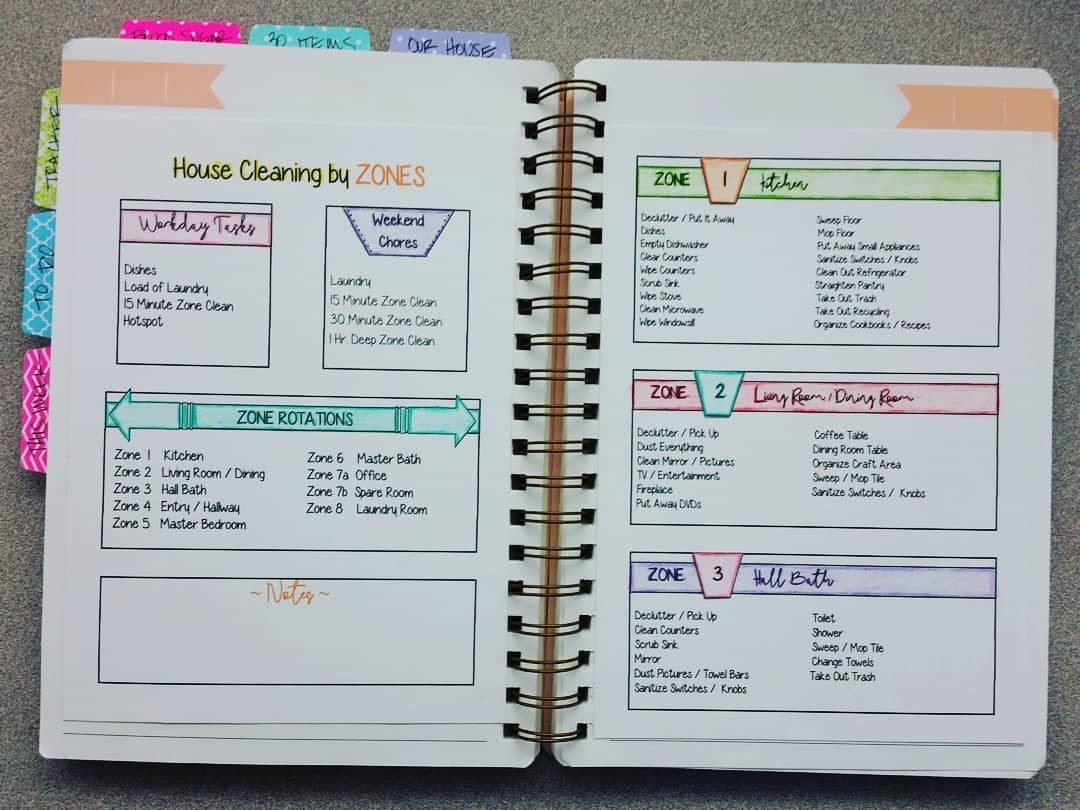 BLUE SUGAR
30 ITEMS
OUR HOUSE
TRACKER
TO DO
THIS WEEK
House Cleaning by ZONES
Workday Tasks
Dishes
Load of Laundry
15 Minute Zone Clean
Hotspot
Weekend
Chores
Laundry
15 Minute Zone Clean
30 Minute Zone Clean
1 Hr. Deep Zone Clean
ZONE ROTATIONS
Zone 1 Kitchen
Zone 2 Living Room / Dining
Zone 3 Hall Bath
Zone 4 Entry / Hallway
Zone 5 Master Bedroom
Zone 6 Master Bath
Zone 7a Office
Zone 7b Spare Room
Zone 8 Laundry Room
~ Notes ~
ZONE 1 Kitchen
Declutter / Put It Away
Dishes
Empty Dishwasher
Clear Counters
Wipe Counters
Scrub Sink
Wipe Stove
Clean Microwave
Wipe Windowsill
Sweep Floor
Mop Floor
Put Away Small Appliances
Sanitize Switches / Knobs
Clean Out Refrigerator
Straighten Pantry
Take Out Trash
Take Out Recycling
Organize Cookbooks / Recipes
ZONE 2 Living Room / Dining Room
Declutter / Pick Up
Dust Everything
Clean Mirror / Pictures
TV / Entertainment
Fireplace
Put Away DVDs
Coffee Table
Dining Room Table
Organize Craft Area
Sweep / Mop Tile
Sanitize Switches / Knobs
ZONE 3 Hall Bath
Declutter / Pick Up
Clean Counters
Scrub Sink
Mirror
Dust Pictures / Towel Bars
Sanitize Switches / Knobs
Toilet
Shower
Sweep / Mop Tile
Change Towels
Take Out Trash